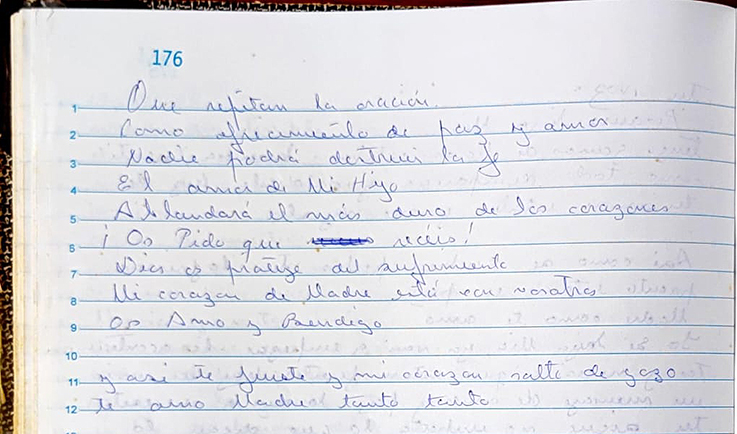 176
1 Que repitan la oración.
2 Como ofrecimiento de paz y amor
3 Nadie podrá destruir la fe
4 El amor de Mi Hijo
5 Ablandará el más duro de los corazones
6 ¡Os Pido que recéis!
7 Dios os protege del sufrimiento
8 Mi corazon de Madre está con vosotros
9 Os Amo y Bendigo
10
11 y asi te fuiste y mi corazon salta de gozo
12 te amo Madre tanto tanto